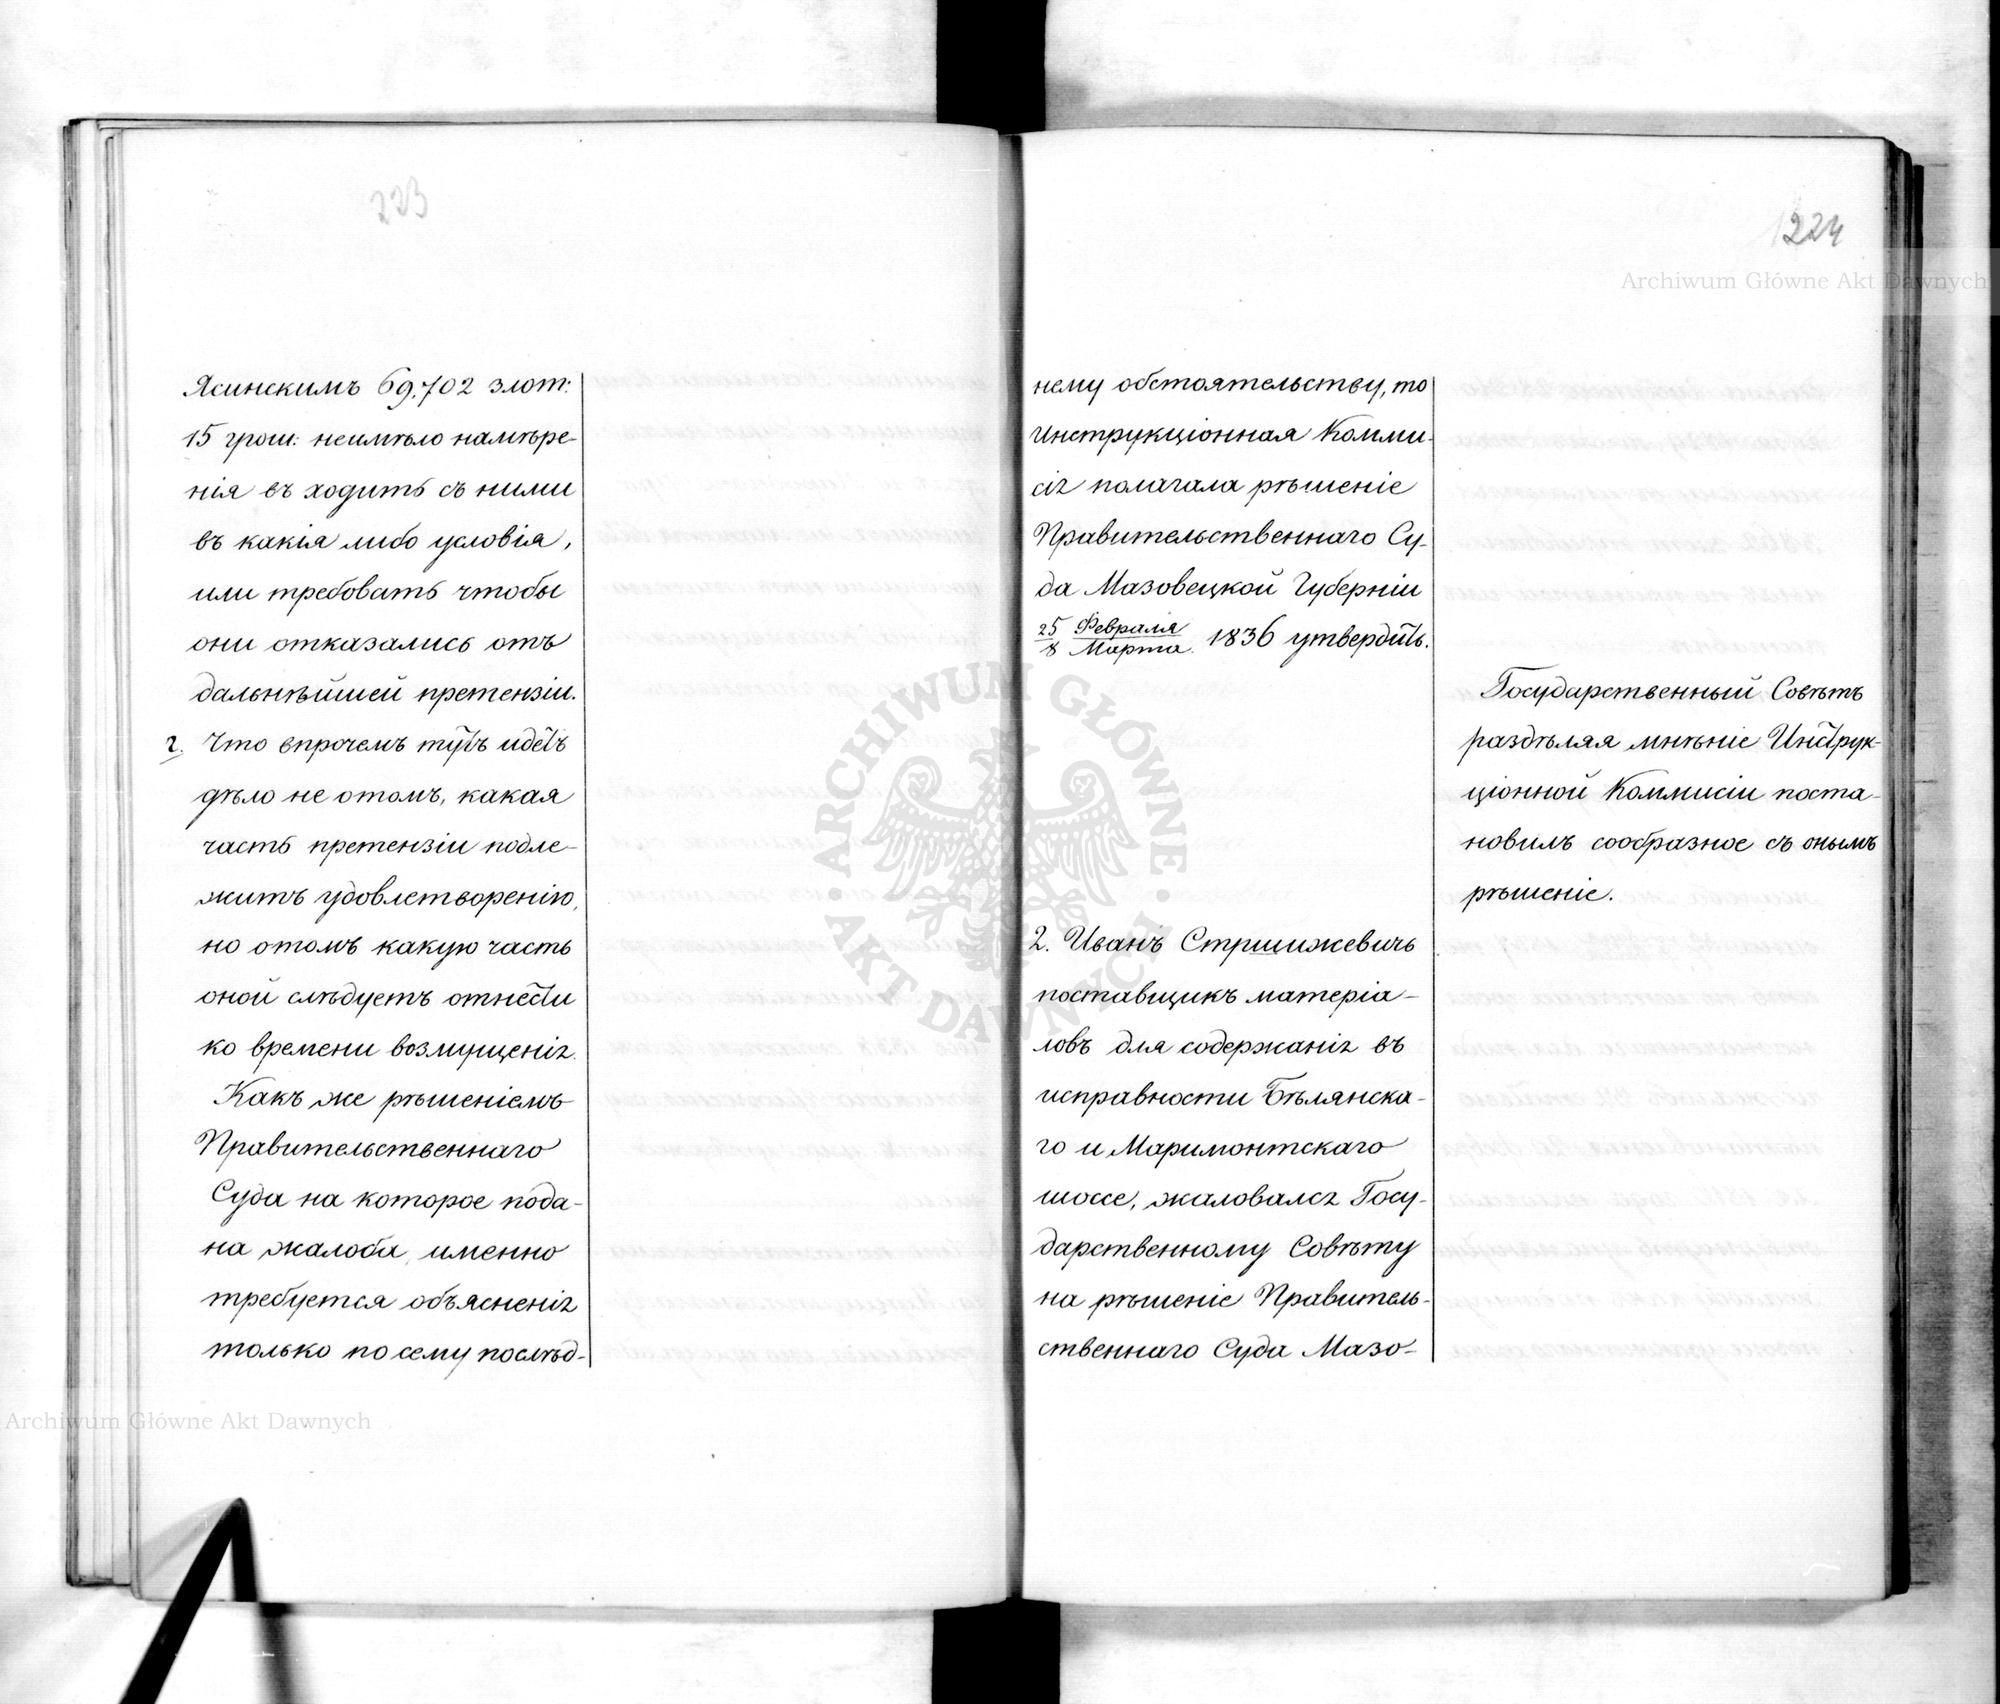 223
Ясинскимъ 69,702 злот:
15 грош: неимѣло намѣре-
нія въ ходить съ ними
въ какія либо условія,
или требовать чтобы
они отказались отъ
дальнѣйшей претензіи.
г. Что впрочемъ тутъ идетъ
дѣло не отомъ, какая
часть претензіи подле-
житъ удовлетворенію,
но отомъ какую часть
оной слѣдуетъ отнести
ко времени возмущенія.
Какъ же рѣшеніемъ
Правительственнаго
Суда на которое пода-
на жалоба, именно
требуется объясненія
только по сему послѣд-
224
Archiwum Główne Akt Dawnych
нему обстоятельству, то
Инструкціонная Комми-
сія полагала рѣшеніе
Правительственнаго Су-
да Мазовецкой Губерніи
25 Февраля
8 Марта. 1836 утвердить.
Государственный Совѣтъ
раздѣляя мнѣніе Инструк-
ціонной Коммисіи поста-
новилъ сообразное съ онымъ
рѣшеніе.
2. Иванъ Стршижевичь
поставщикъ матеріа-
ловъ для содержанія въ
исправности Бѣлянска-
го и Маримонтскаго
шоссе, жаловался Госу-
дарственному Совѣту
на рѣшеніе Правитель-
ственнаго Суда Мазо-
ARCHIWUM GŁÓWNE
AKT DAWNYCH
Archiwum Główne Akt Dawnych